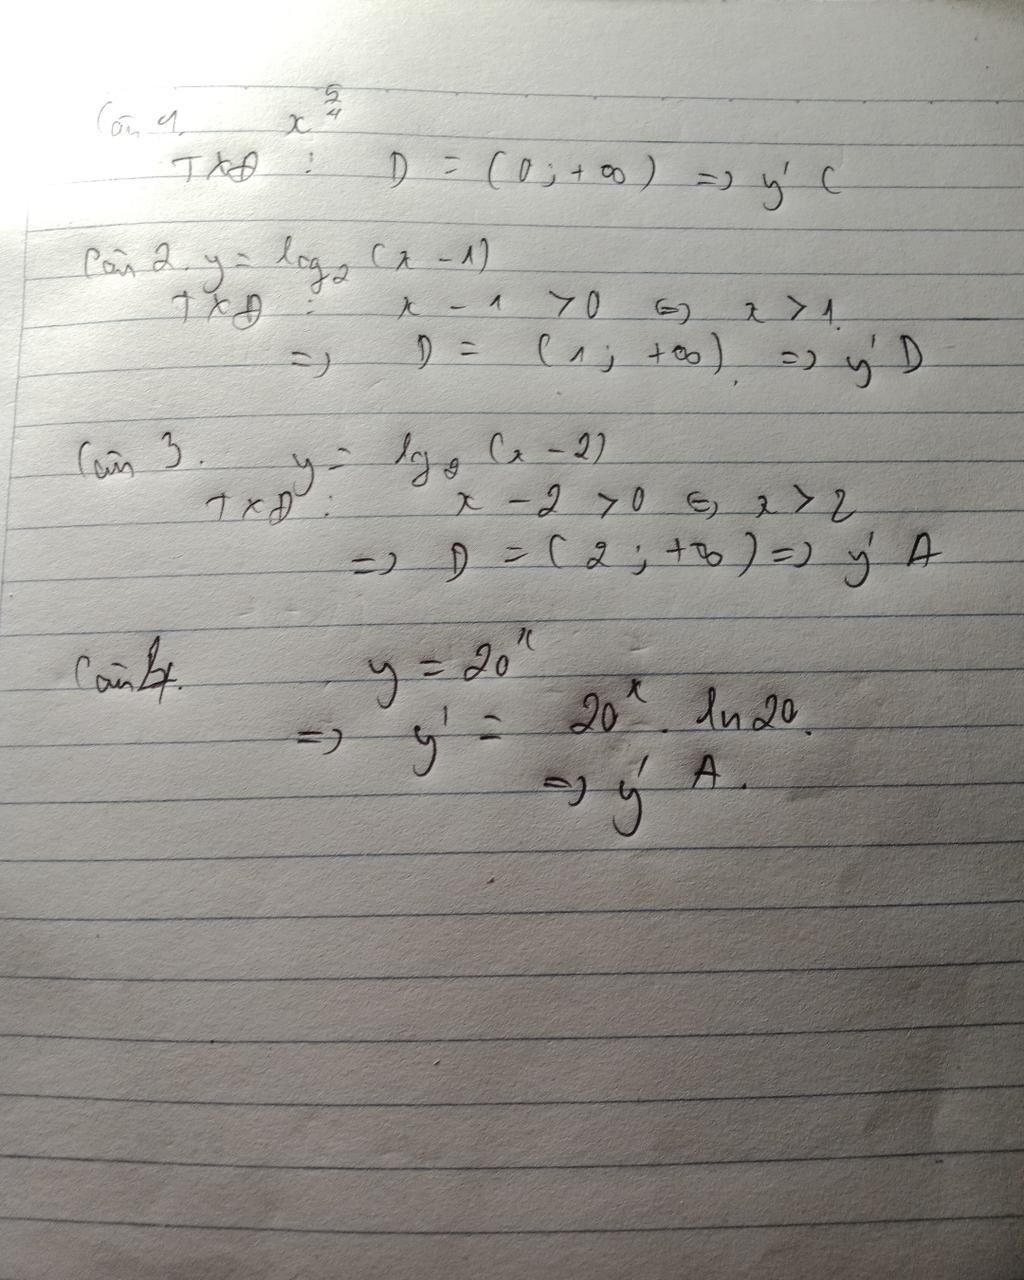 Câu 1. x^{5/4}
TXĐ : D = (0 ; +∞) => ý C
Câu 2. y = log₂ (x - 1)
TXĐ : x - 1 > 0 <=> x > 1.
=> D = (1 ; +∞). => ý D
Câu 3. y = (x - 2)
TXĐ : x - 2 > 0 <=> x > 2
=> D = (2 ; +∞) => ý A
Câu 4. y = 20ˣ
=> y' = 20ˣ . ln 20.
=> ý A.